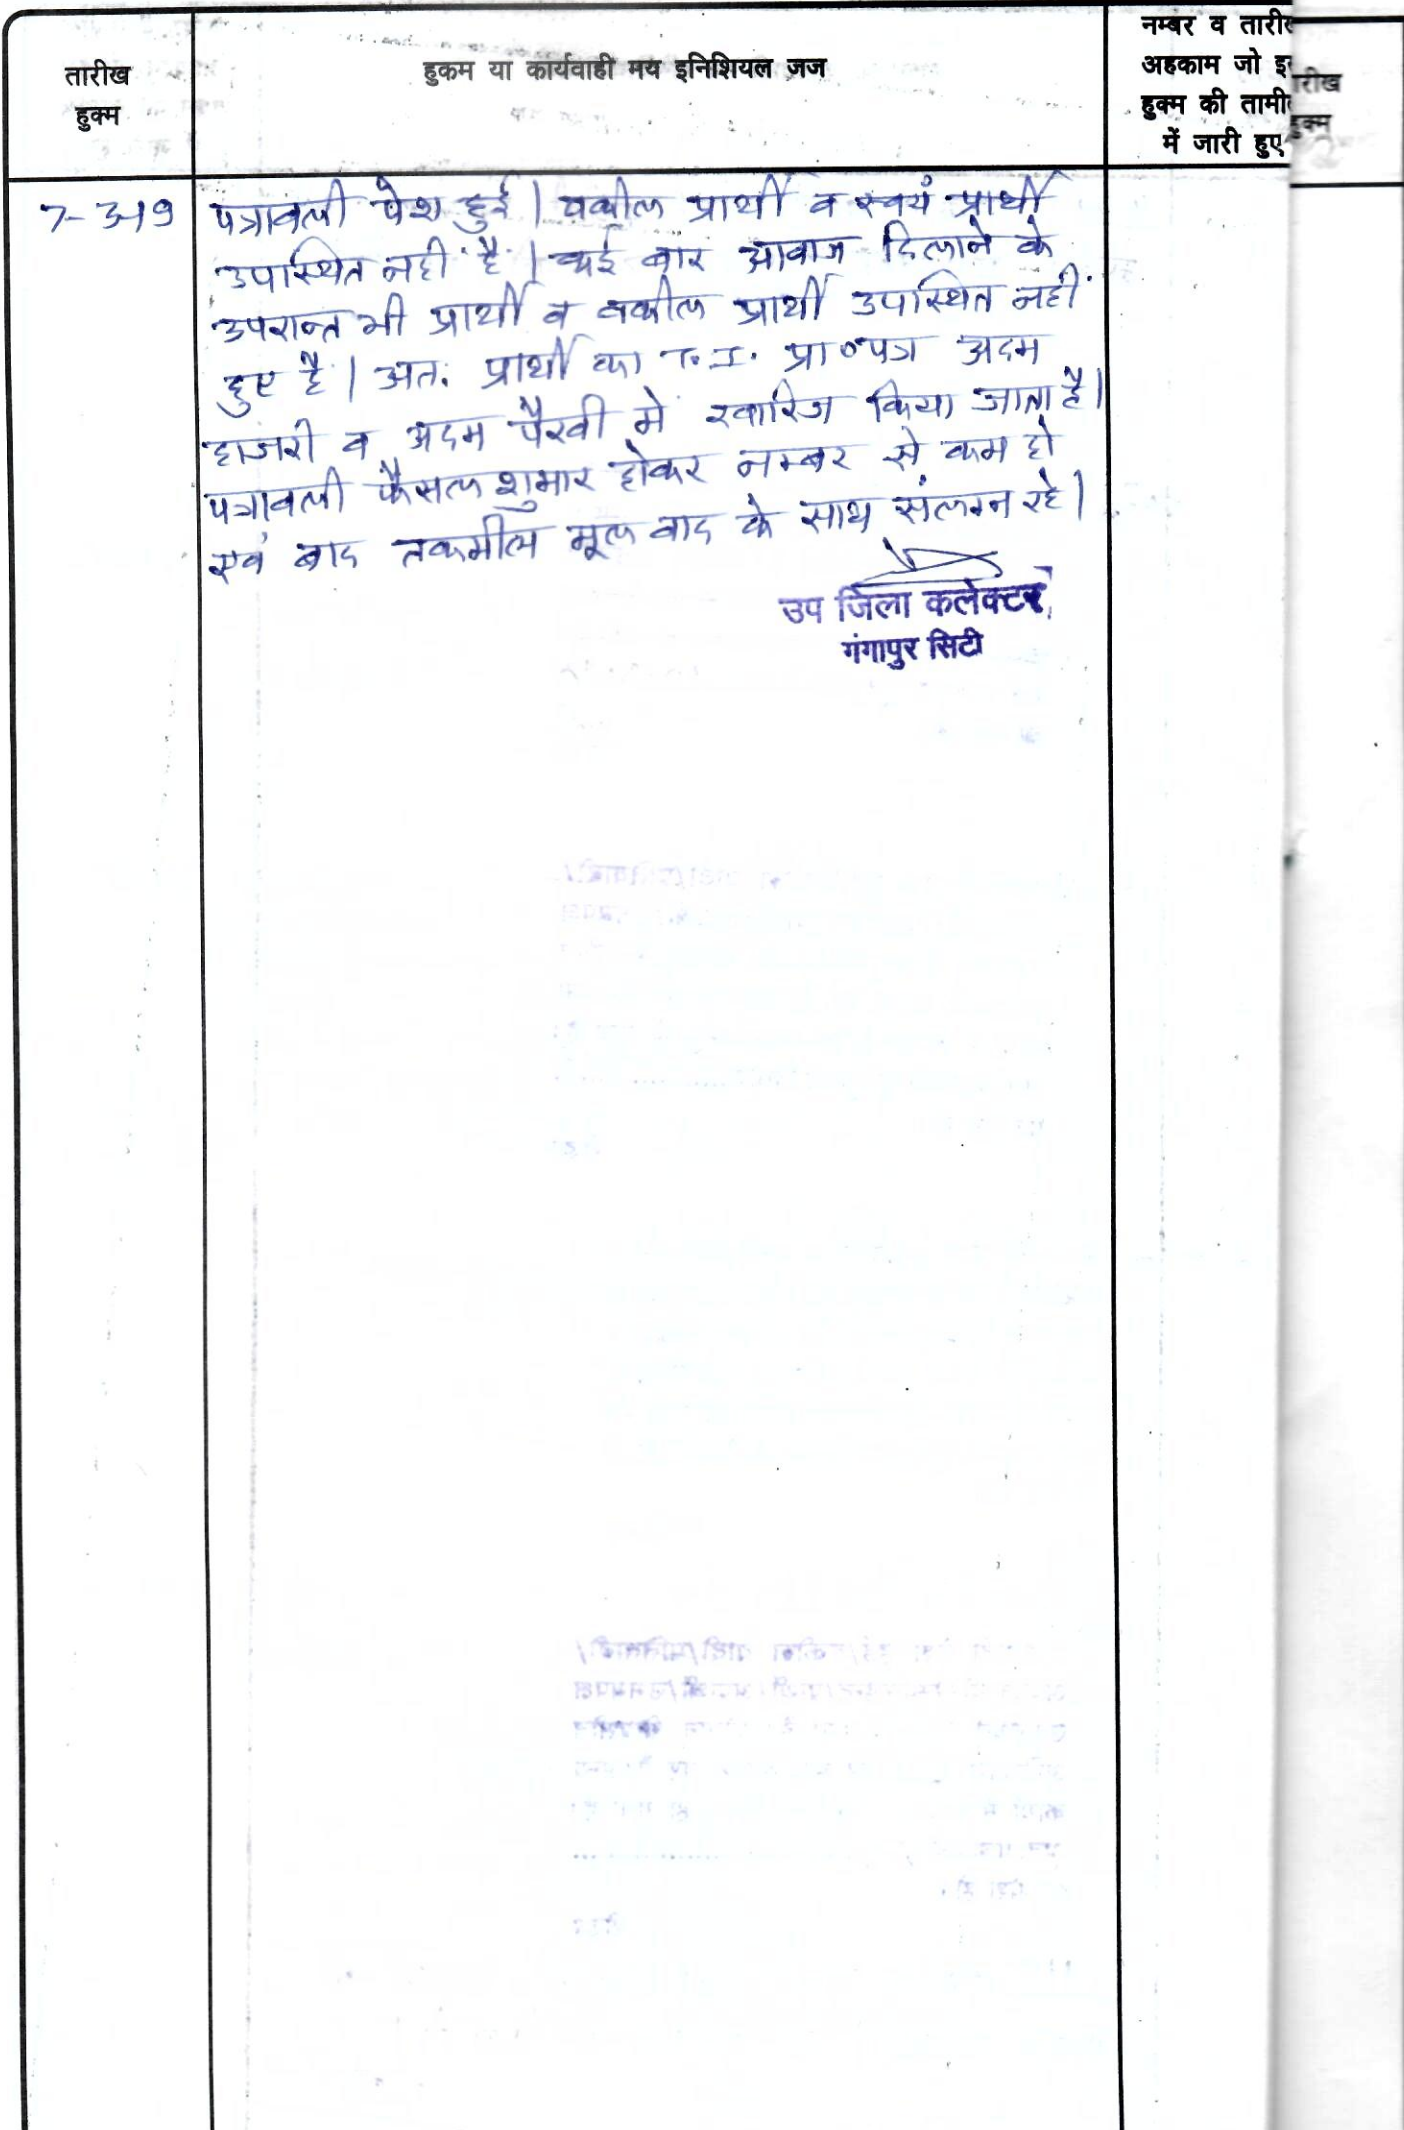 तारीख
हुक्म
हुकम या कार्यवाही मय इनिशियल जज
नम्बर व तारीख
अहकाम जो इस
हुक्म की तामील
में जारी हुए
रीख
हुक्म
7-3-19
पत्रावली पेश हुई। वकील प्रार्थी व स्वयं प्रार्थी
उपस्थित नहीं है। कई बार आवाज दिलाने के
उपरान्त भी प्रार्थी व वकील प्रार्थी उपस्थित नहीं
हुए है। अतः प्रार्थी का T.I. प्रा०पत्र अदम
हाजरी व अदम पैरवी मे खारिज किया जाता है।
पत्रावली फैसल शुमार होकर नम्बर से कम हो
एवं बाद तकमील मूल वाद के साथ संलग्न रहे।
उप जिला कलेक्टर
गंगापुर सिटी